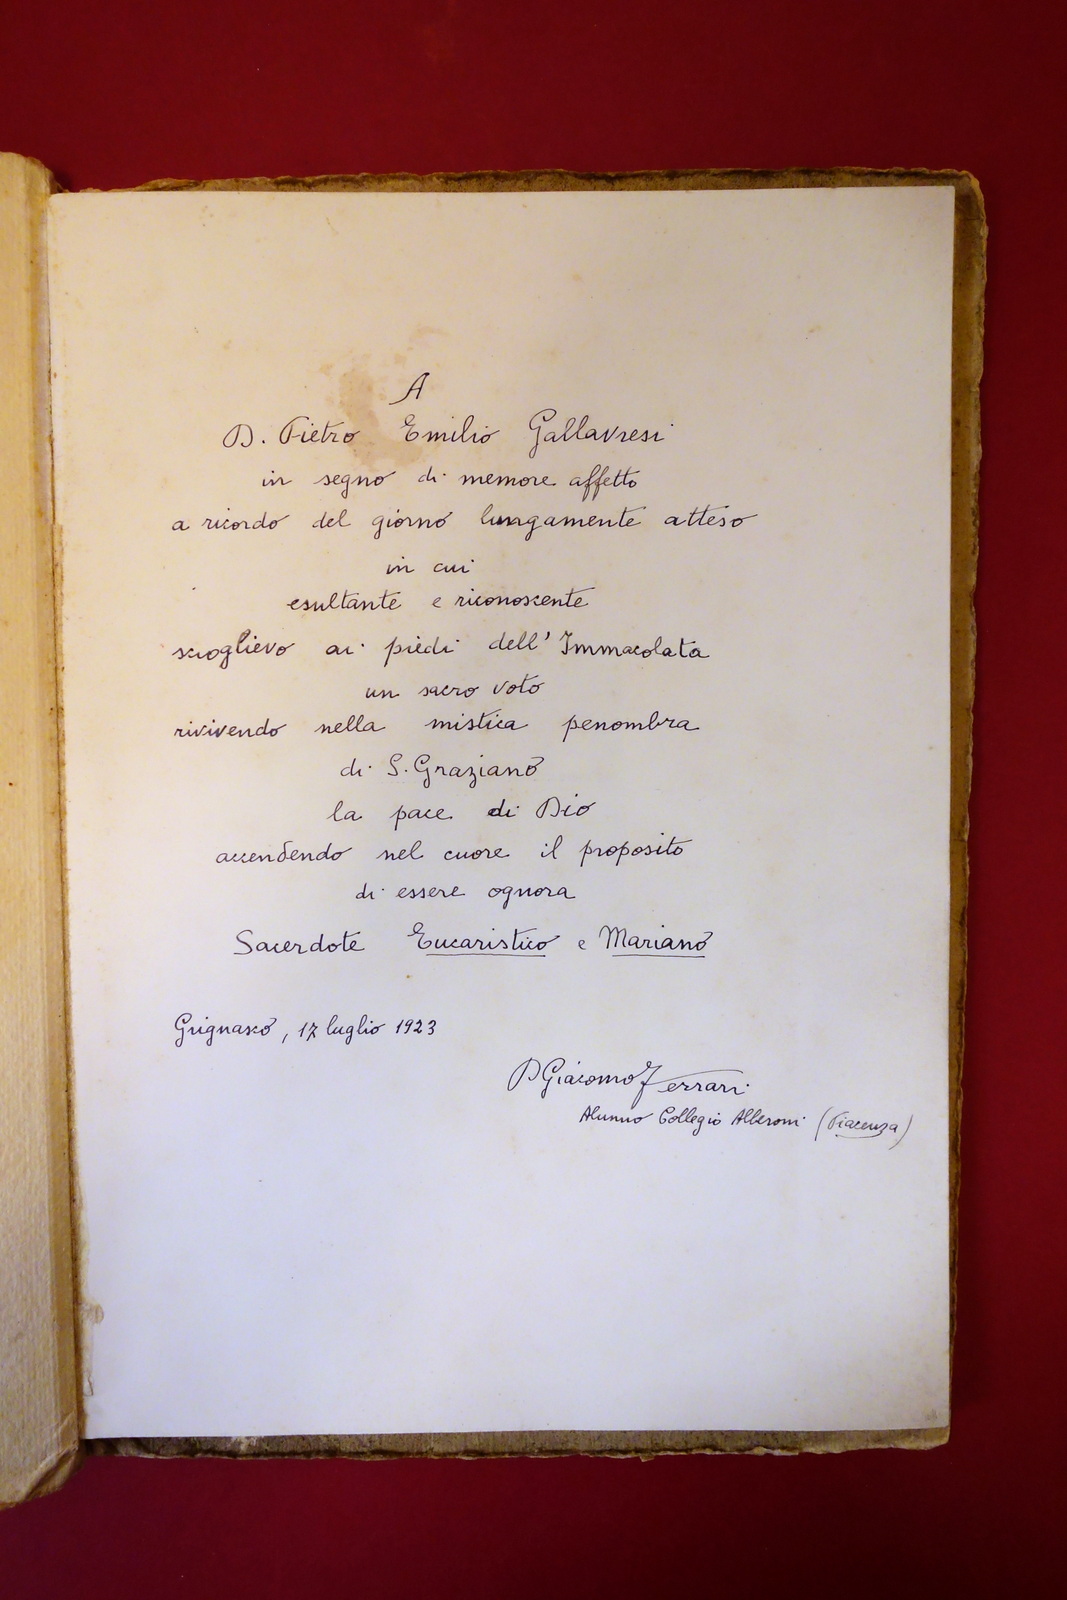 A
D. Pietro Emilio Gallavresi
in segno di memore affetto
a ricordo del giorno lungamente atteso
in cui
esultante e riconoscente
scioglievo ai piedi dell' Immacolata
un sacro voto
rivivendo nella mistica penombra
di S. Graziano
la pace di Dio
accendendo nel cuore il proposito
di essere ognora
Sacerdote Eucaristico e Mariano
Grignasco, 17 luglio 1923
D Giacomo Ferrari
Alunno Collegio Alberoni (Piacenza)